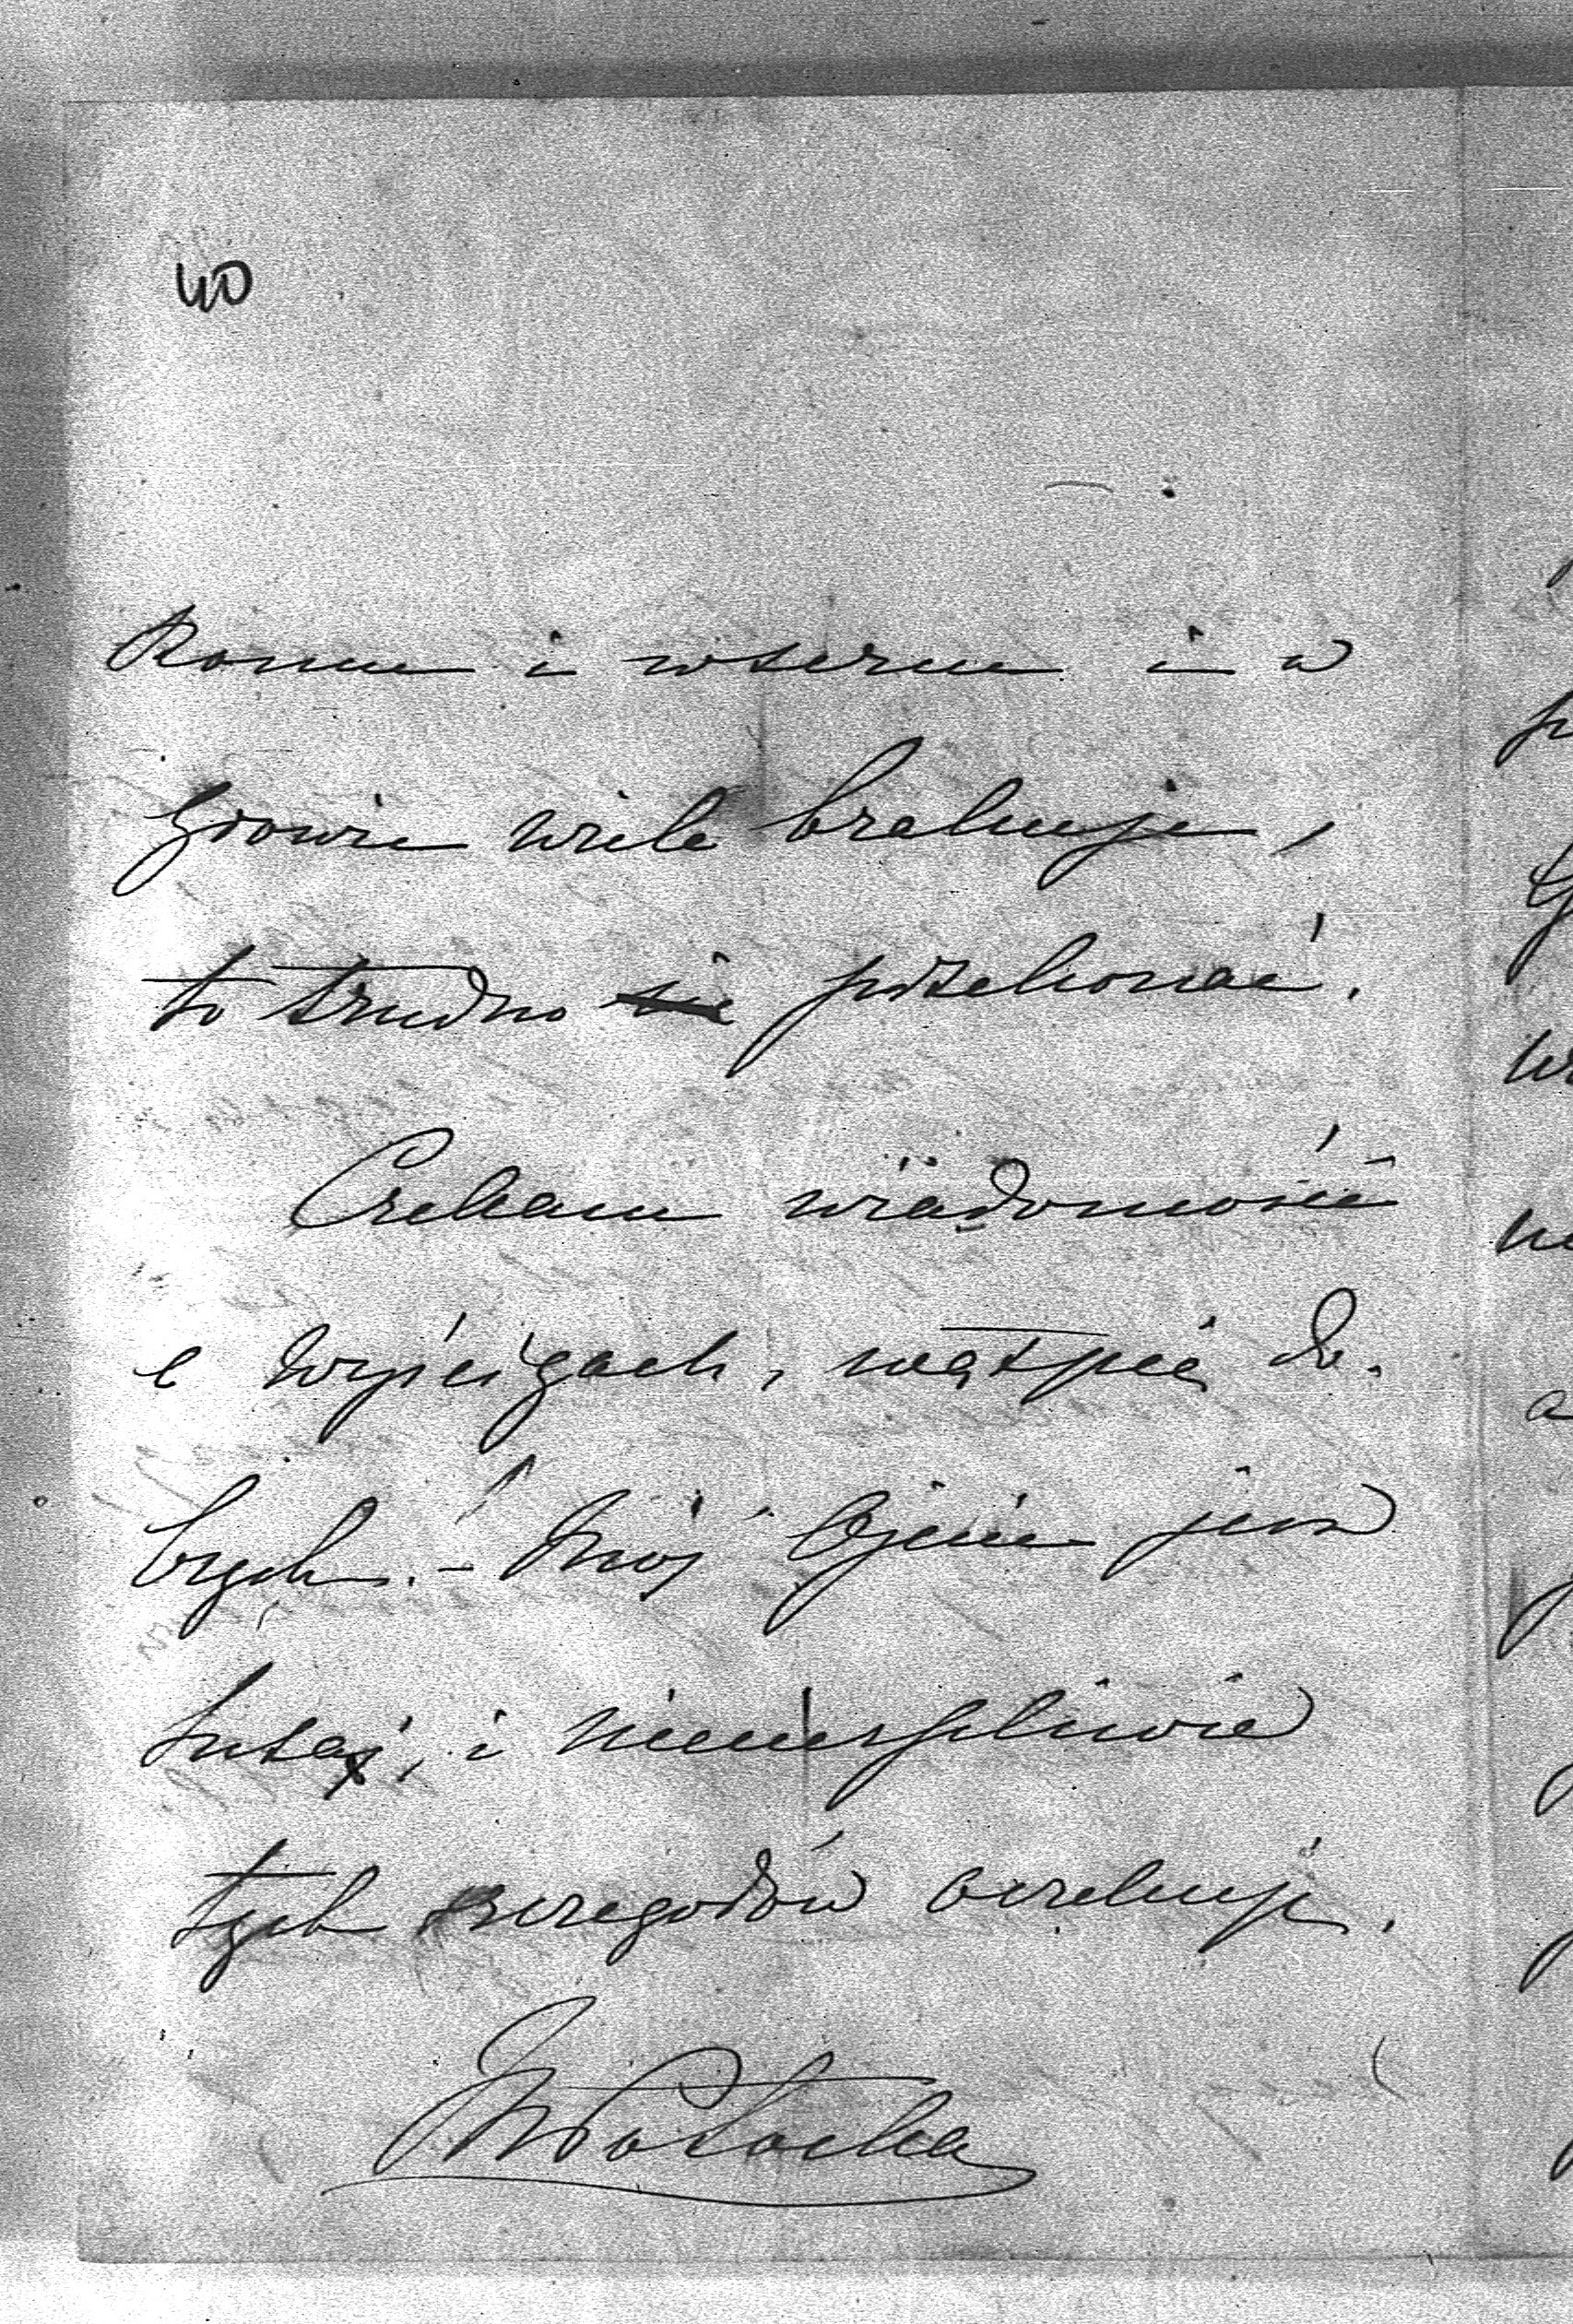 40
komu i w sercu i w
głowie wiele brakuje,
to trudno się przekonać.
Czekam wiadomości
o wyścigach, wątpię do-
brych. - Mój Ojciec jest
tutaj, i niecierpliwie
tych szczegółów oczekuje.
Potocka